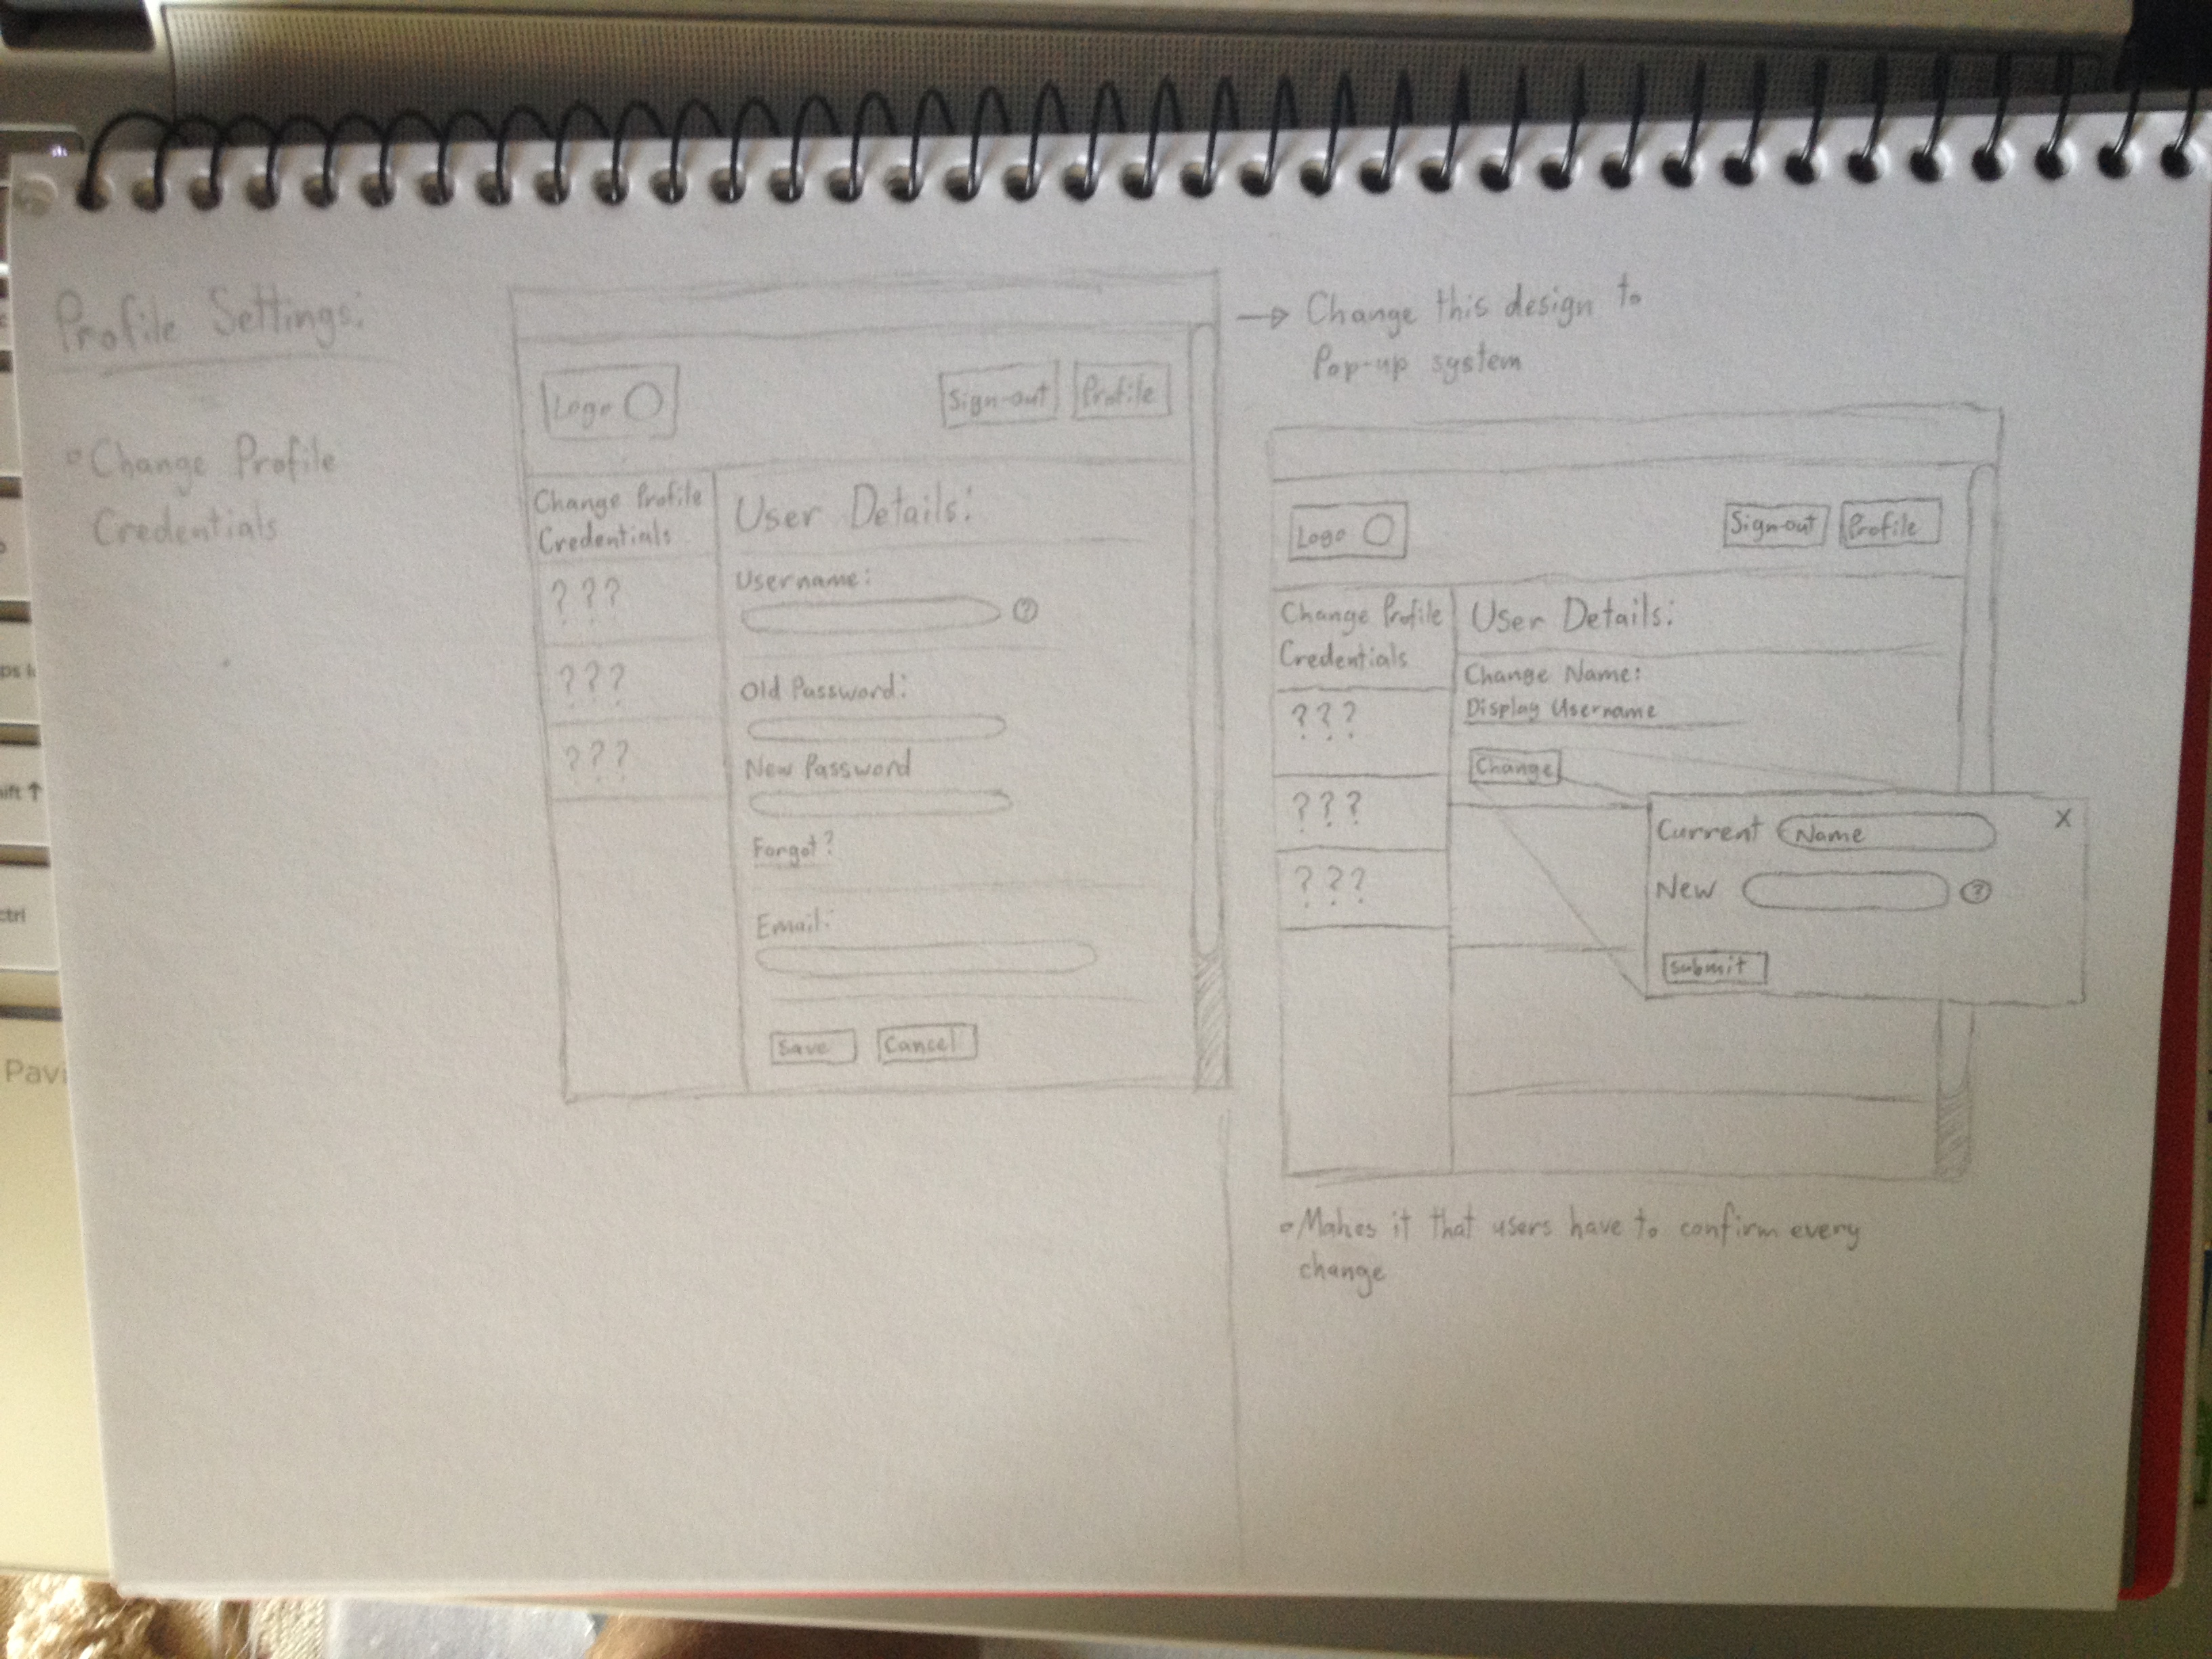 Profile Settings:
Change Profile
Credentials
Logo
Sign-out
Profile
Change Profile
Credentials
???
???
???
User Details:
Username:
?
Old Password:
New Password
Forgot?
Email:
Save
Cancel
→ Change this design to
Pop-up system
Logo
Sign-out
Profile
Change Profile
Credentials
???
???
???
User Details:
Change Name:
Display Username
Change
X
Current Name
New ?
Submit
Makes it that users have to confirm every
change
shift ↑
ctrl
Pavi